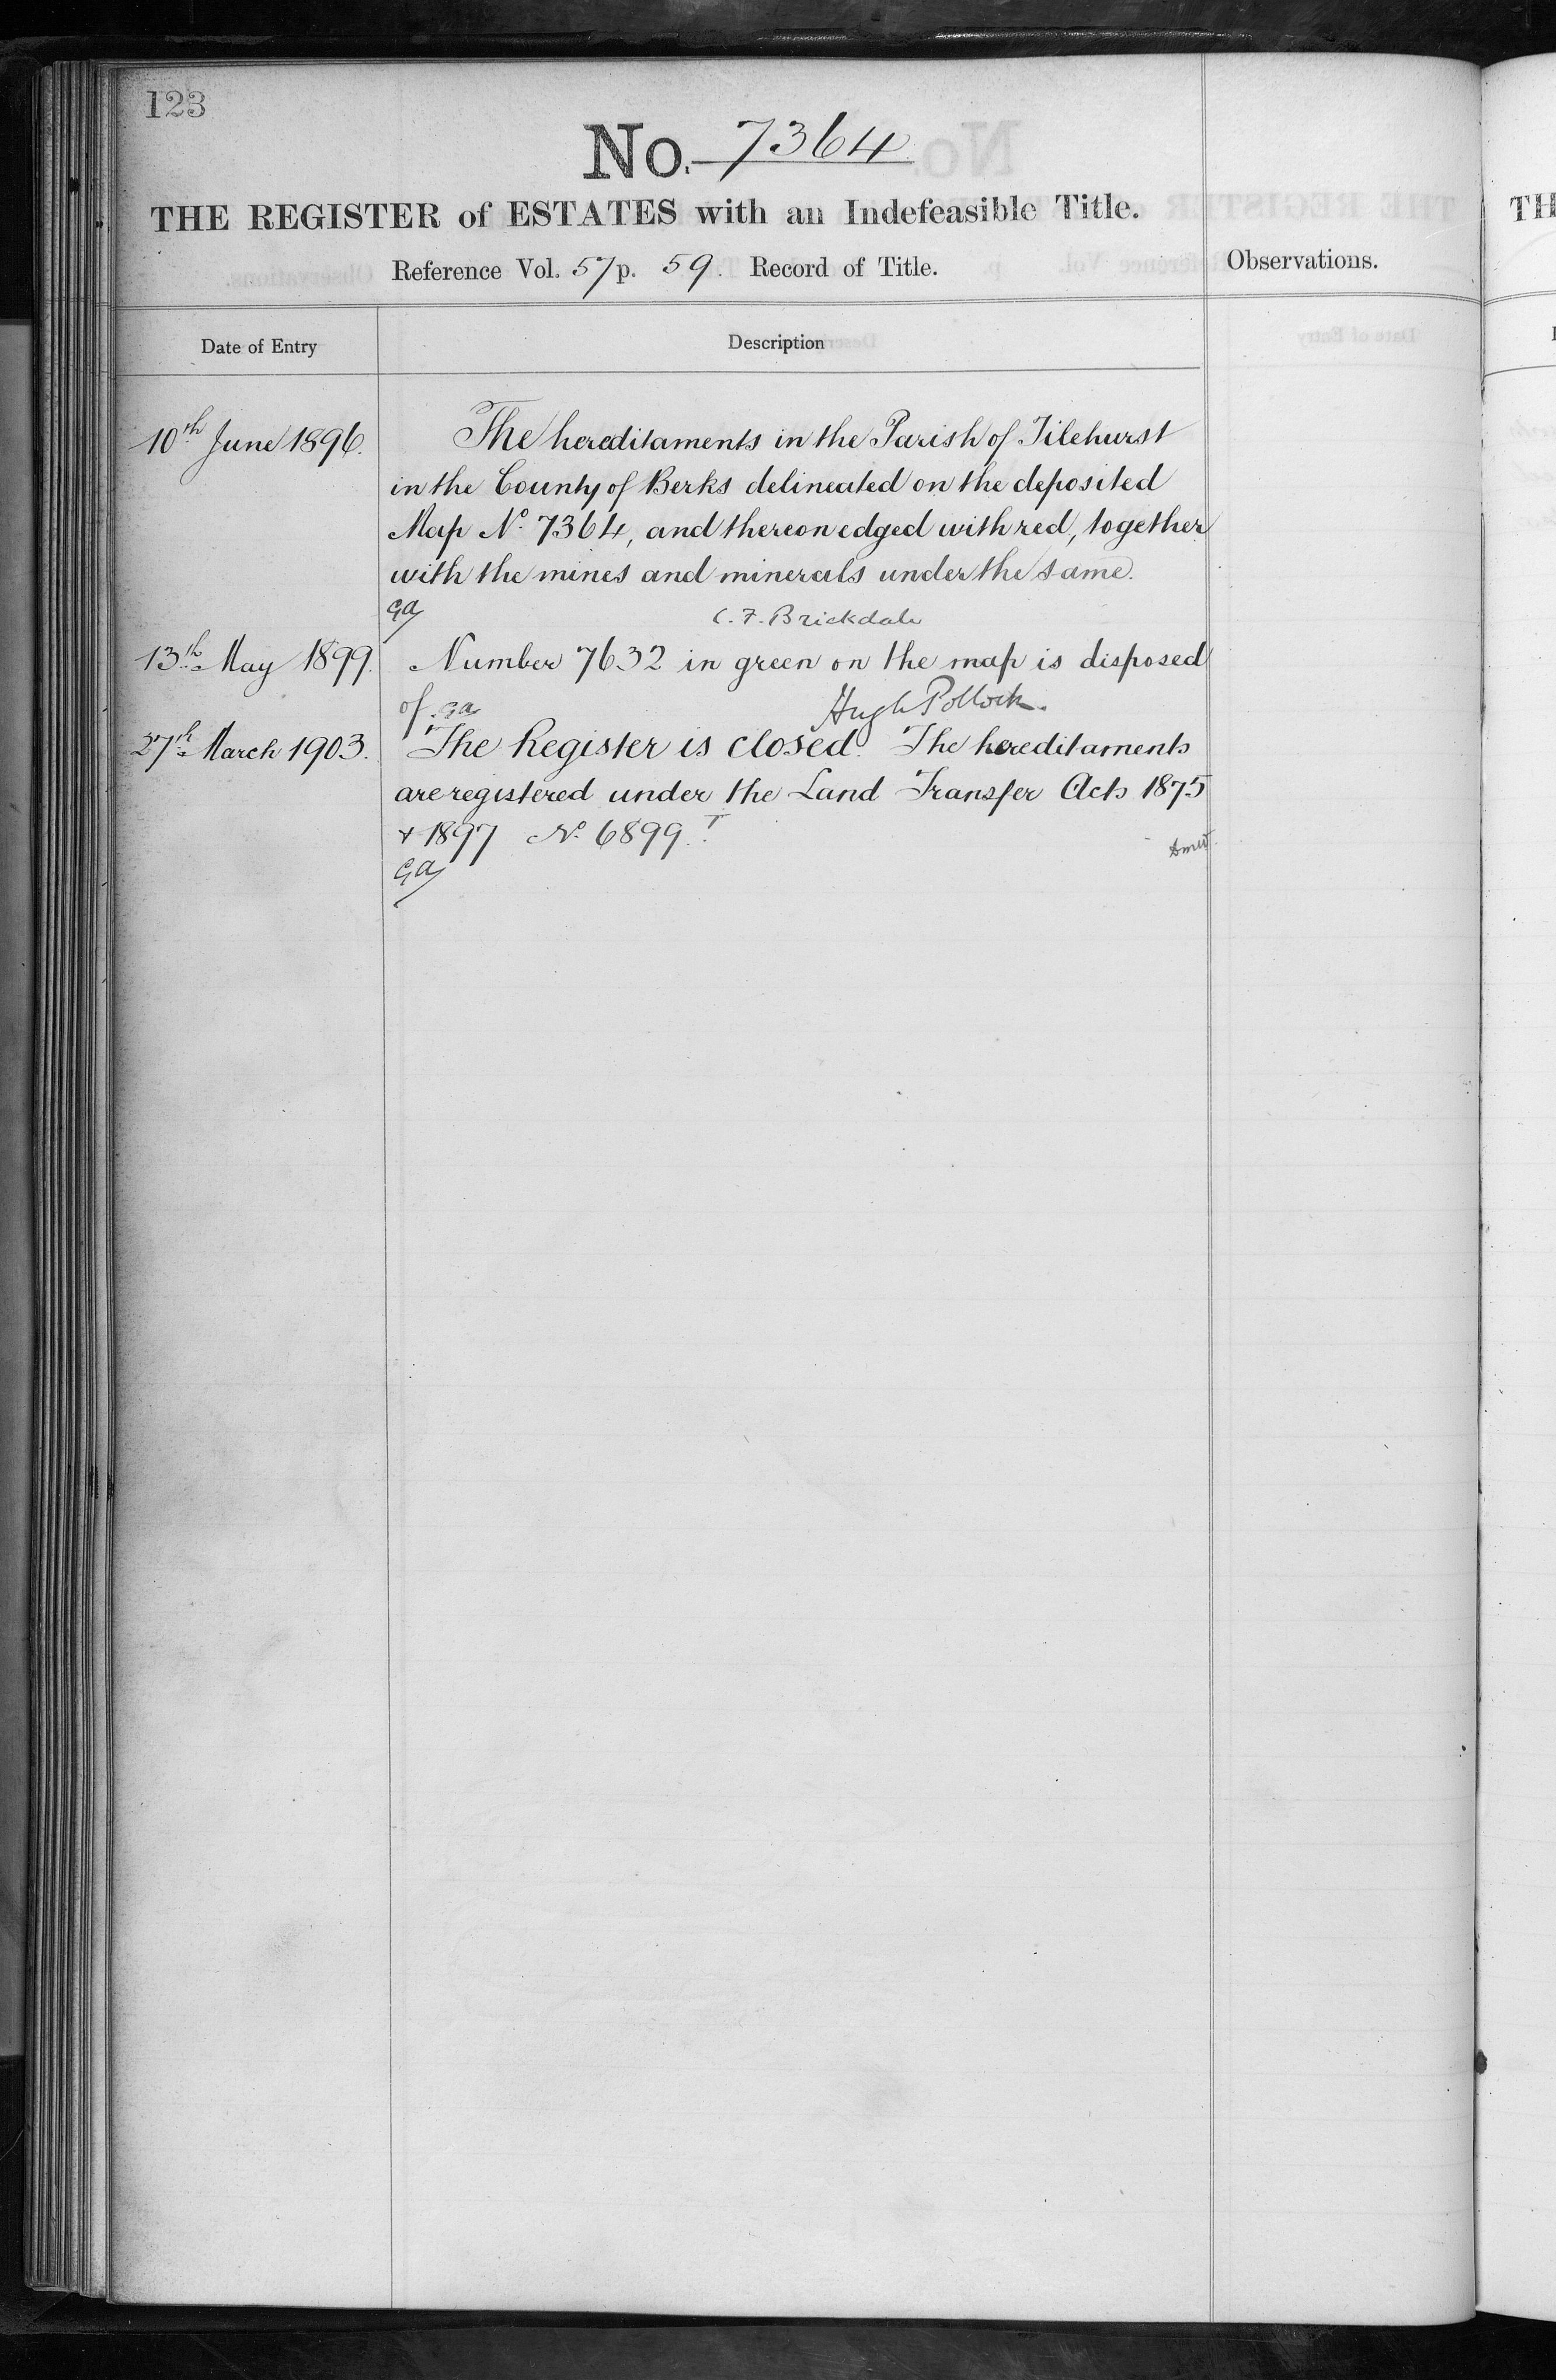 123
No. 7364
THE REGISTER of ESTATES with an Indefeasible Title.
Reference Vol. 57 p. 59. Record of Title.
Observations.
Date of Entry
Description
10th June 1896.
The hereditaments in the Parish of Tilehurst
in the County of Berks delineated on the deposited
Map No. 7364, and thereon edged with red, together
with the mines and minerals under the same.
GA
C. F. Brickdale
13th May 1899.
Number 7632 in green on the map is disposed
of. GA
Hugh Pollock.
27th March 1903.
The Register is closed. The hereditaments
are registered under the Land Transfer Acts 1875
+ 1897 No. 6899.T
GA
TH